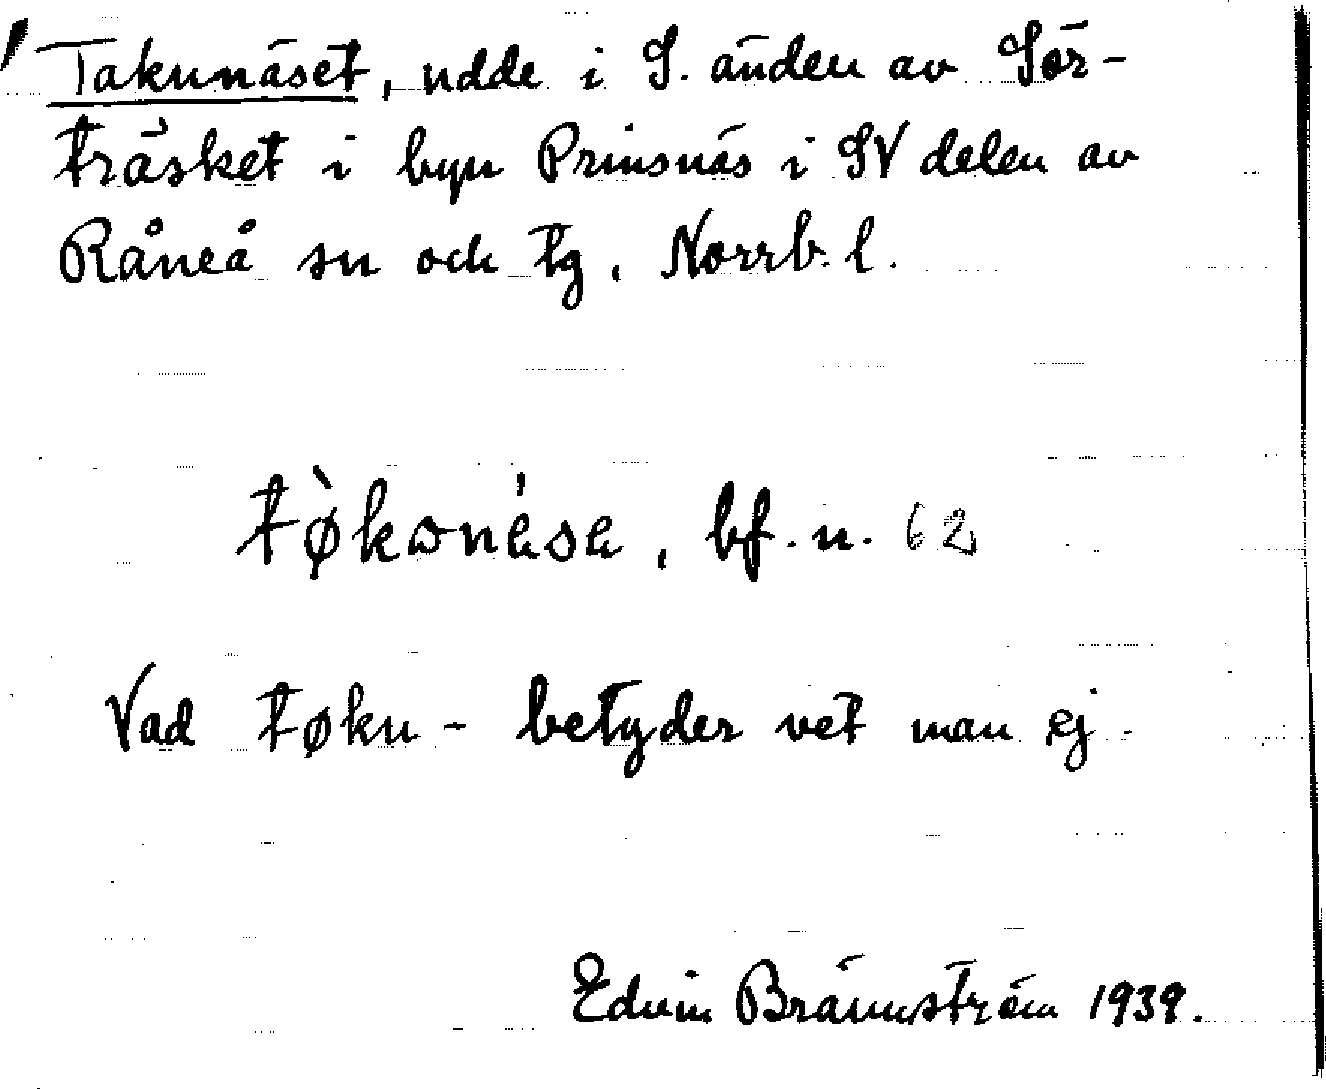 Takunäset, udde i S. änden av Sör-
träsket i byn Prinsnäs i SV delen av
Råneå sn och tg, Norrb. l.
tø̀kɷnésɐ, bf. n. 62
Vad tøku- betyder vet man ej.
Edvin Brännström 1939.